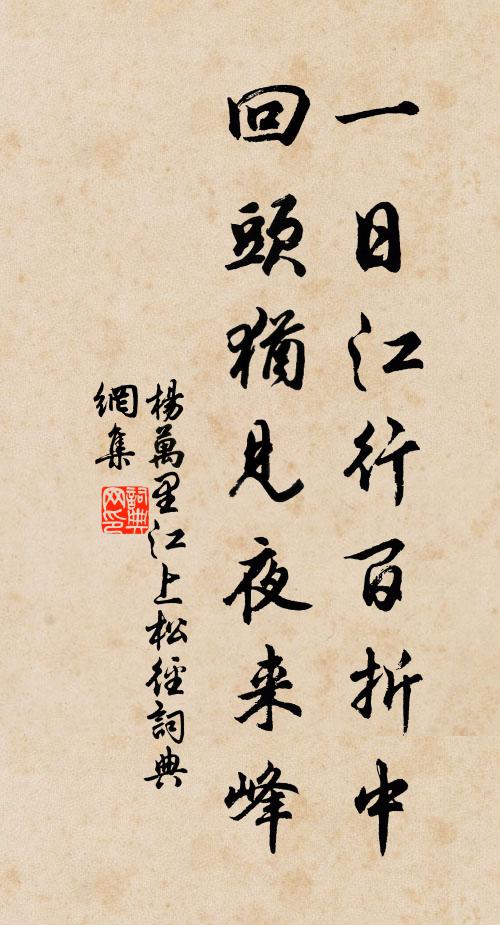 一日江行百折中
回頭猶見夜来峰
楊萬里江上松徑詞典
網集
詞典网印